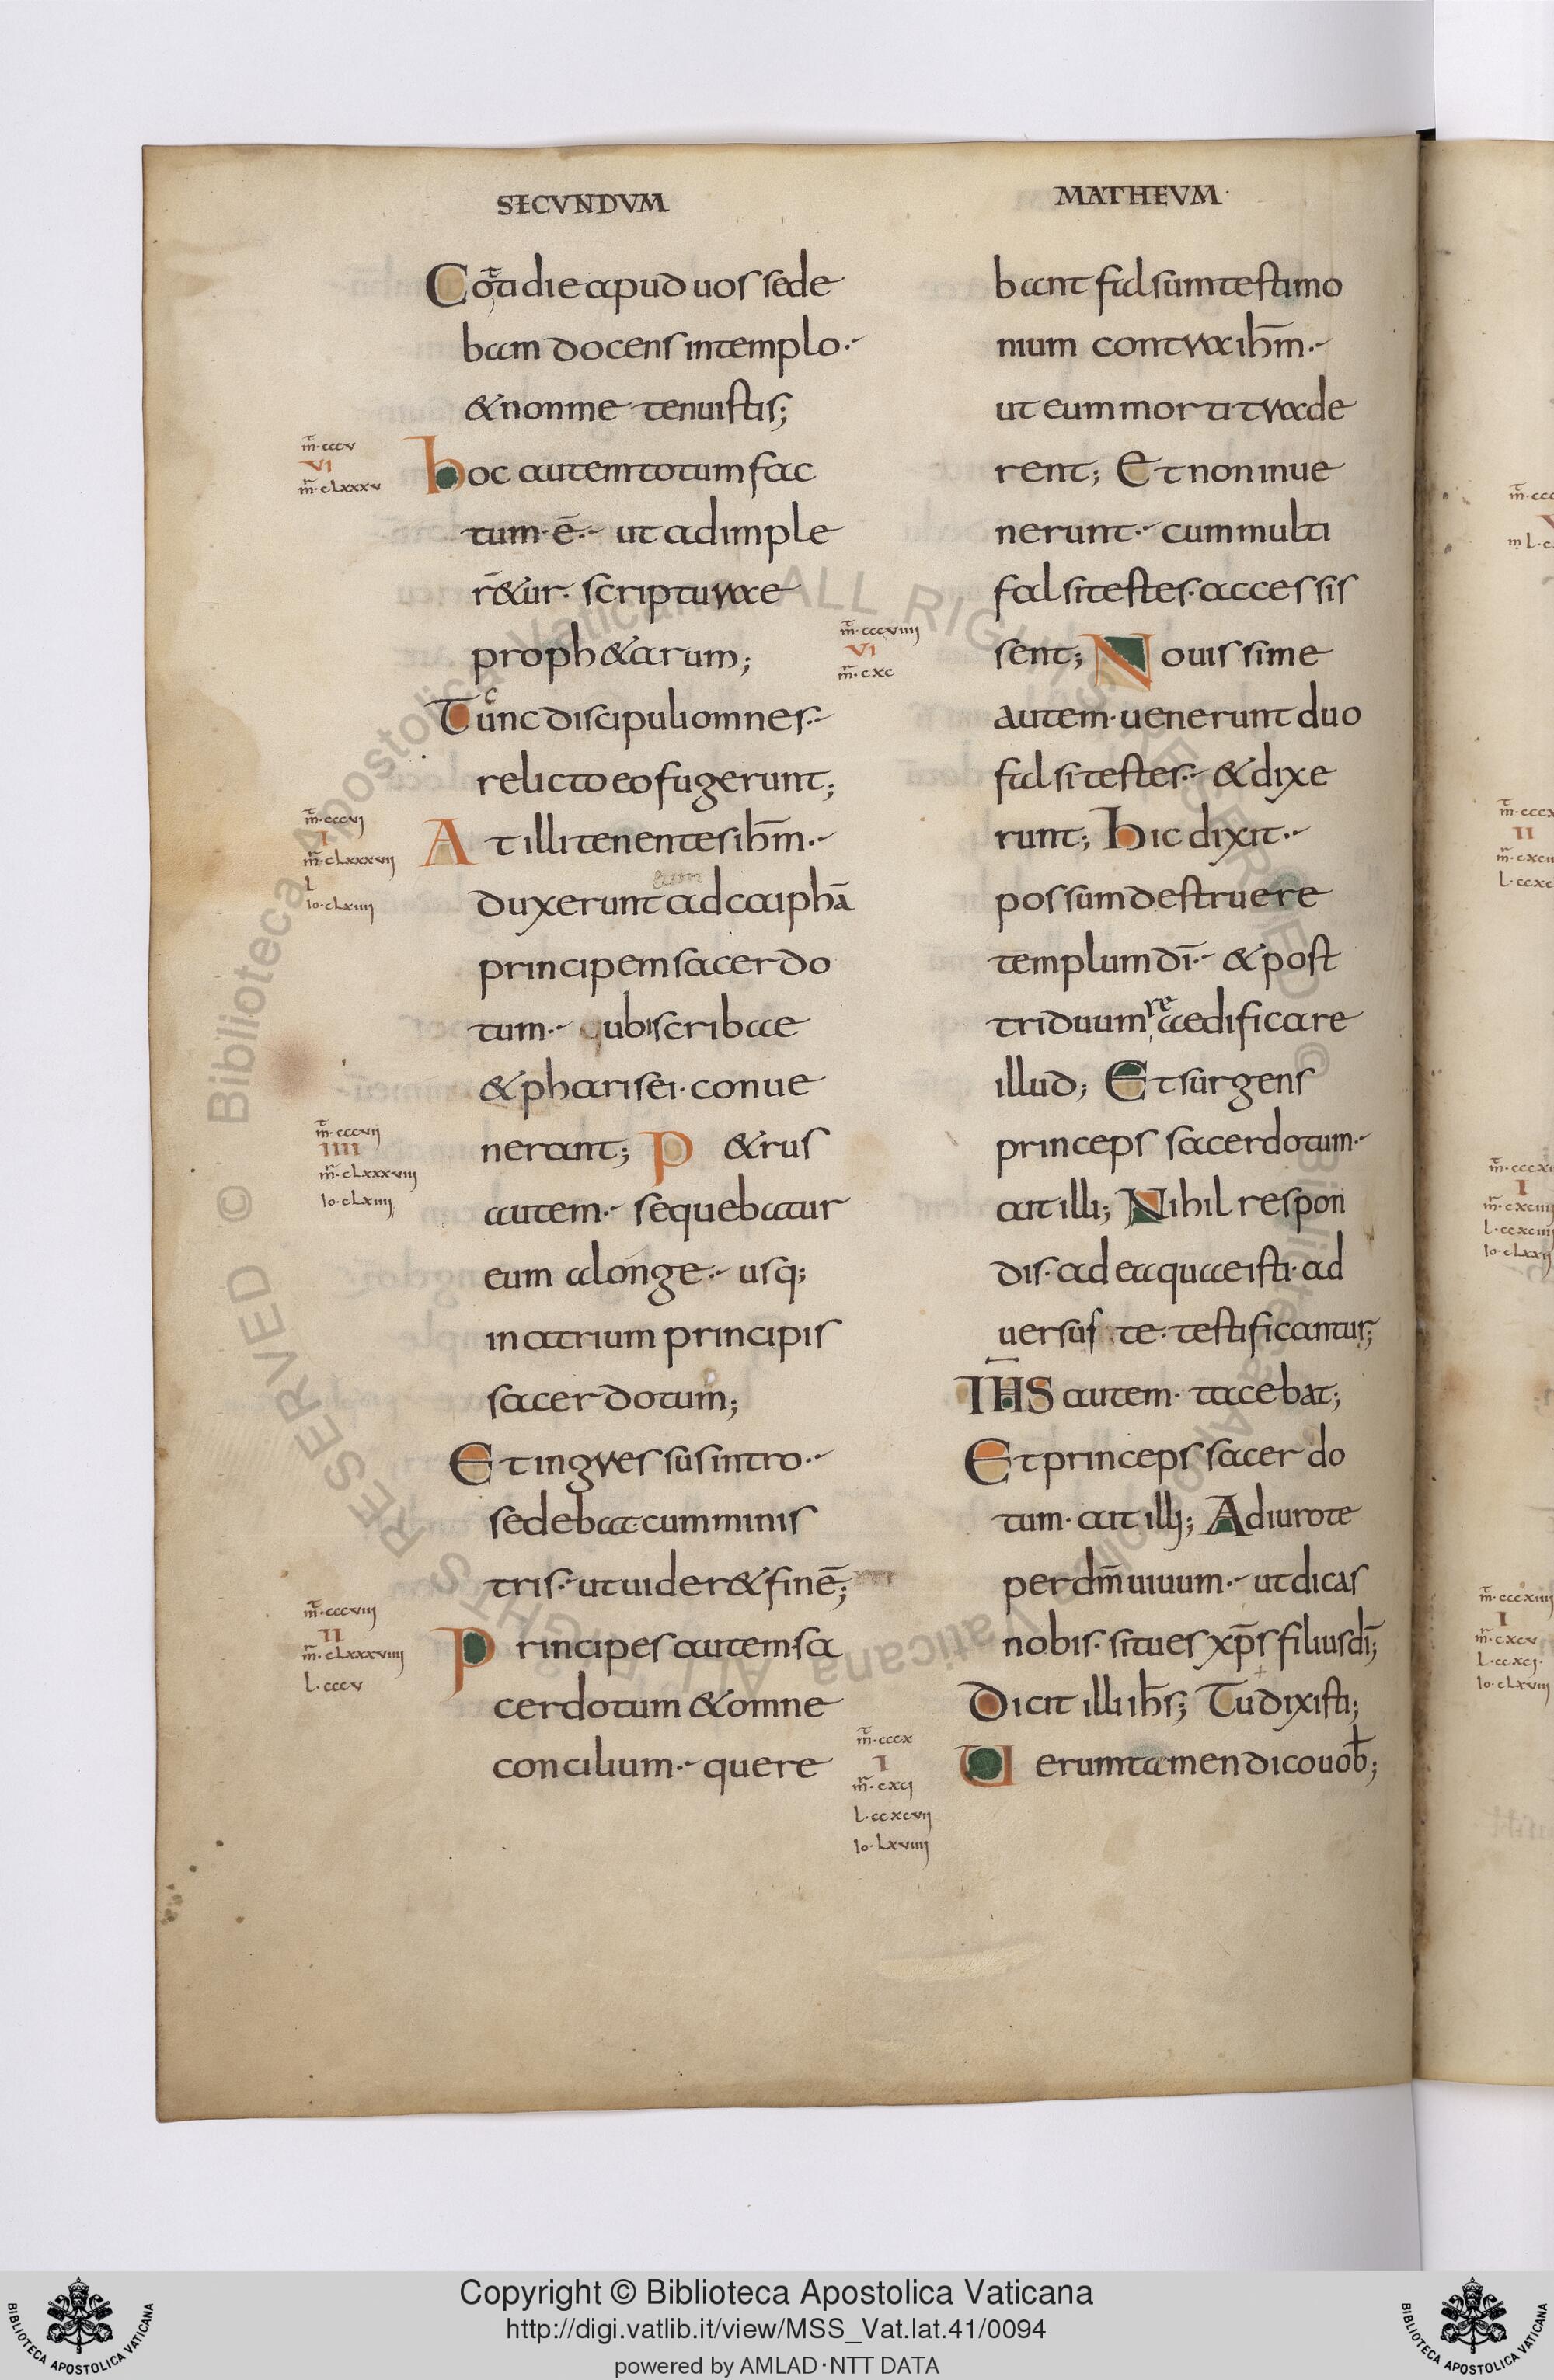 SECVNDVM
Cotidie apud uos sede
bam docens in templo.
& non me tenuistis;
m̄·cccv
VI
m̄·clxxxv
hoc autem totum fac
tum·ē· ut adimple
r̄&ur· scripturae
proph&arum;
Tunc discipuli omnes·
relicto eo fugerunt;
m̄·cccvi
I
m̄·clxxxvii
l
Io·clxiiii
At illi tenentes ih̄m·
duxerunt ad caiphā
principem sacerdo
tum· ubi scribae
& pharisei· conue
m̄·cccvii
IIII
m̄·clxxxviii
Io·clxiiii
nerant; P&rus
autem· sequebatur
eum a longe· usq;
in atrium principis
sacerdotum;
Et ingressus intro·
sedebat cum minis
tris· ut uider& finē;
m̄·cccviii
II
m̄·clxxxviiii
L·cccv
Principes autem sa
cerdotum & omne
concilium· quere
MATHEVM·
bant falsum testimo
nium contra ih̄m·
ut eum morti trade
rent; Et non inue
nerunt· cum multi
falsi testes· accessis
m̄·cccviiii
VI
m̄·cxc
sent; Nouissime
autem· uenerunt duo
falsi testes· & dixe
runt; hic dixit·
possum destruere
templum dī· & post
triduum reaedificare
illud; Et surgens
princeps sacerdotum·
ait illi; Nihil respon
dis· ad ea quae isti· ad
uersus te· testificantur;
IH̄S autem· tacebat;
Et princeps sacerdo
tum· ait illi; Adiuro te
per dm̄ uiuum· ut dicas
nobis· si tu es xp̄s filius dī;
Dicit illi ih̄s; Tu dixisti;
m̄·cccx
I
m̄·cxci
L·ccxcvii
Io·lxviiii
Uerumtamen dico uob̄;
Copyright © Biblioteca Apostolica Vaticana
http://digi.vatlib.it/view/MSS_Vat.lat.41/0094
powered by AMLAD·NTT DATA
BIBLIOTECA APOSTOLICA VATICANA
BIBLIOTECA APOSTOLICA VATICANA
© Biblioteca Apostolica Vaticana ALL RIGHTS RESERVED © Biblioteca Apostolica Vaticana ALL RIGHTS RESERVED